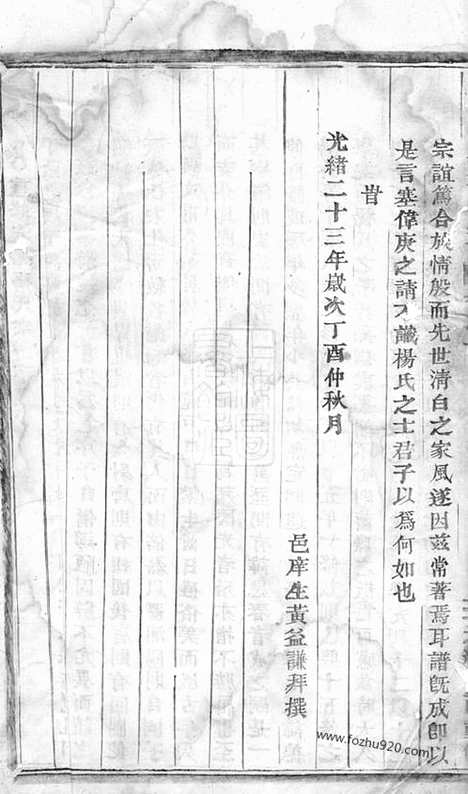 宗誼篤合族情殷而先世清白之家風遂因茲常著焉耳譜既成即以
是言塞偉庚之請不識楊氏之士君子以爲何如也
旹
光緒二十三年歲次丁酉仲秋月
邑庠生黃益謙拜撰
www.fozhu920.com